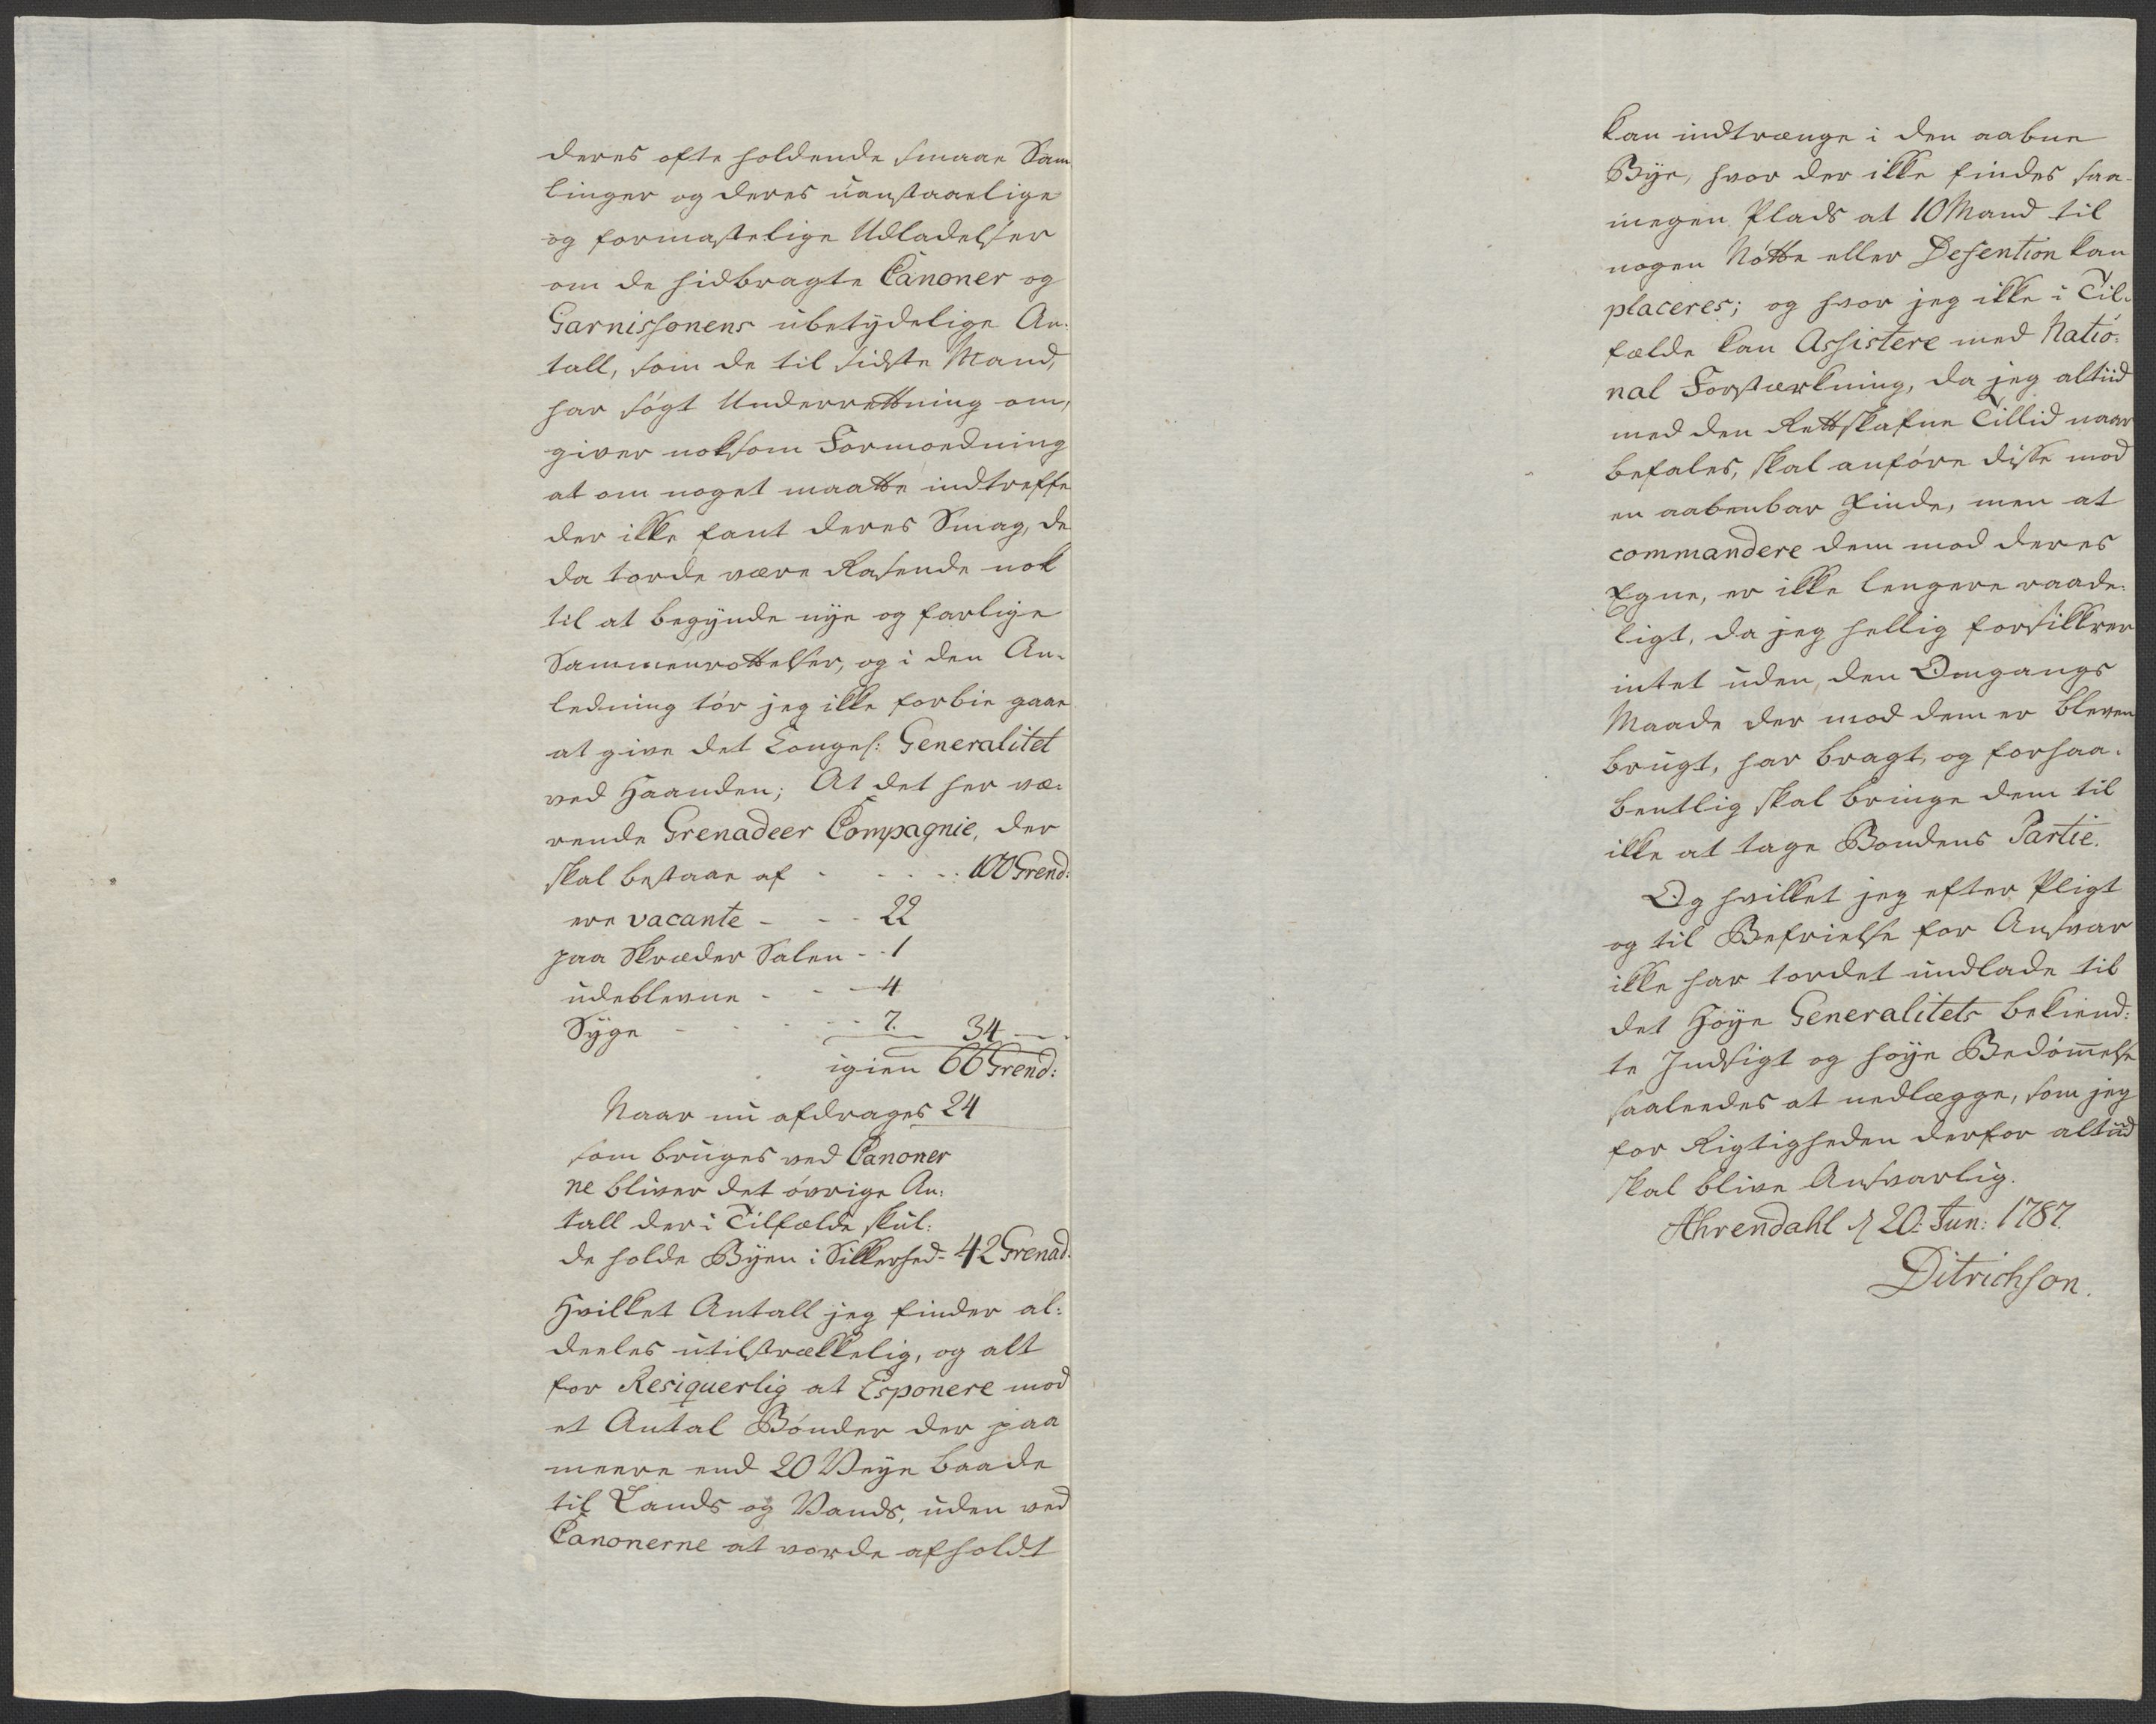 deres ofte holdende smaae Sam
linger og deres uanstaaelige
og formastelige Udladelser
om de hidbragte Canoner og
Garnissonens ubetydelige An-
tall, som de til sidste Mand,
har søgt Underrettning om,
giver noksom Formodning
at om noget maatte indtreffe
der ikke fant deres Smag, de
da torde være Rasende nok
til at begynde nye og farlige
Sammenrottelser, og i den An-
ledning tør jeg ikke forbie gaae
at give det Kongel: Generalitet
ved Haanden; At det her væ-
rende Grenadeer Compagnie, der
skal bestaae af - - - - 100 Grend:
ere vacante - - - 22
paa Skræder Salen - - 1
udeblevne - - - 4
Syge - - - - 7. 34 -
igien 66 Grend:
Naar nu afdrages 24
som bruges ved Canoner
ne bliver det øvrige An-
tall der i Tilfælde skul-
de holde Byen i Sikkerhed - 42 Grenad:
Hvilket Antall jeg finder al-
deeles utilstrækkelig, og alt
for Resiquerlig at Esponere mod
et Antal Bønder der paa
meere end 20 Veye baade
til Lands og Vands, uden ved
Canonerne at vorde afholdt
kan indtrænge i den aabne
Bye, hvor der ikke findes saa-
megen Plads at 10 Mand til
nogen Nøtte eller Defention kan
placeres; og hvor jeg ikke i Til-
fælde kan Assistere med Natio-
nal Forstærkning, da jeg altiid
med den Rettskafne Tillid naar
befales, skal anføre disse mod
en aabenbar Fiende, men at
commandere dem mod deres
Egne, er ikke lengere raade-
ligt, da jeg hellig forsikkrer
intet uden den Omgangs
Maade der mod dem er bleven
brugt, har bragt, og forhaa-
bentlig skal bringe dem til
ikke at tage Bondens Partie.
Og hvilket jeg efter Pligt
og til Befrielse for Ansvar
ikke har tordet undlade til
det Høye Generalitets bekiend-
te Indsigt og høye Bedømmelse
saaleedes at nedlægge, som jeg
for Rigtigheden derfor altiid
skal blive Ansvarlig.
Ahrendahl d 20: Jun: 1787.
Ditrichson.